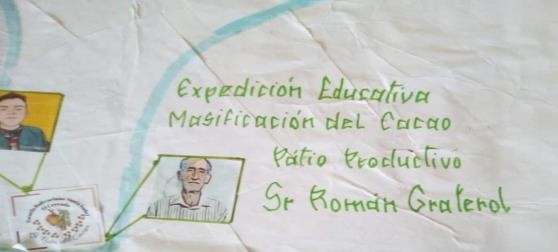 Expedición Educativa
Masificación del Cacao
Patio Productivo
Sr Román Graterol